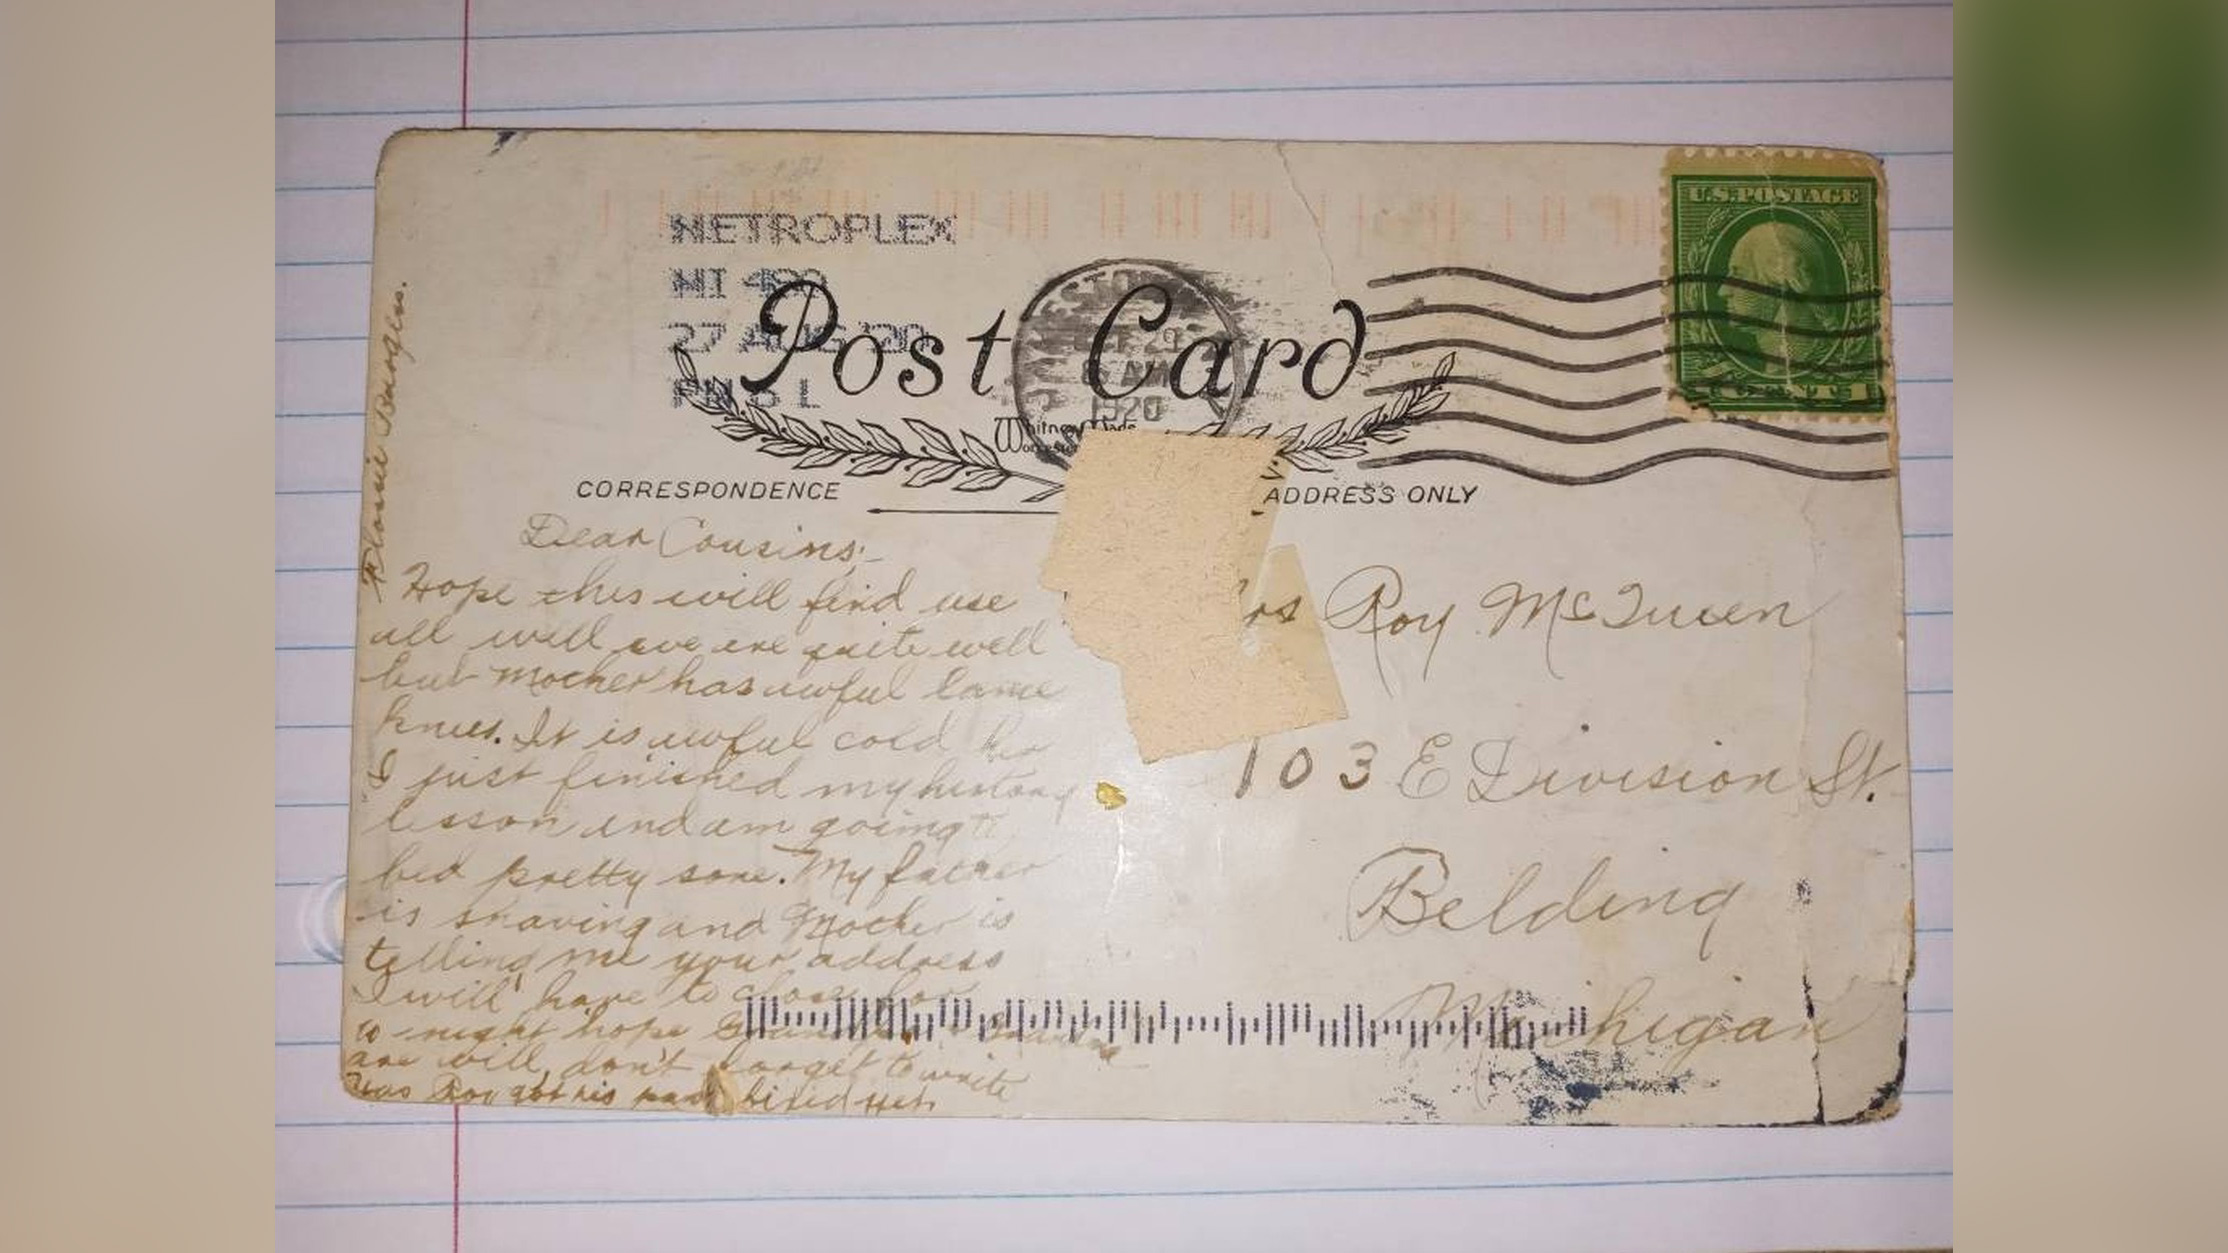 U.S. POSTAGE
METROPLEX
MI 480
27 AUG '20
PM 8 L
29
AM
1920
Post Card
Whitney Made
Worcester
CORRESPONDENCE
ADDRESS ONLY
Dear Cousins;-
Hope this will find use
all well we are quite well
but Mother has awful lame
knees. It is awful cold
I just finished my history
lesson and am going to
bed pretty sone. My father
is shaving and Mother is
telling me your address
I will have to close for
to night hope
are well, don't forget to write
Has Roy got his
Flossie Burgess.
Roy McQueen
103 E Division St.
Belding
Michigan